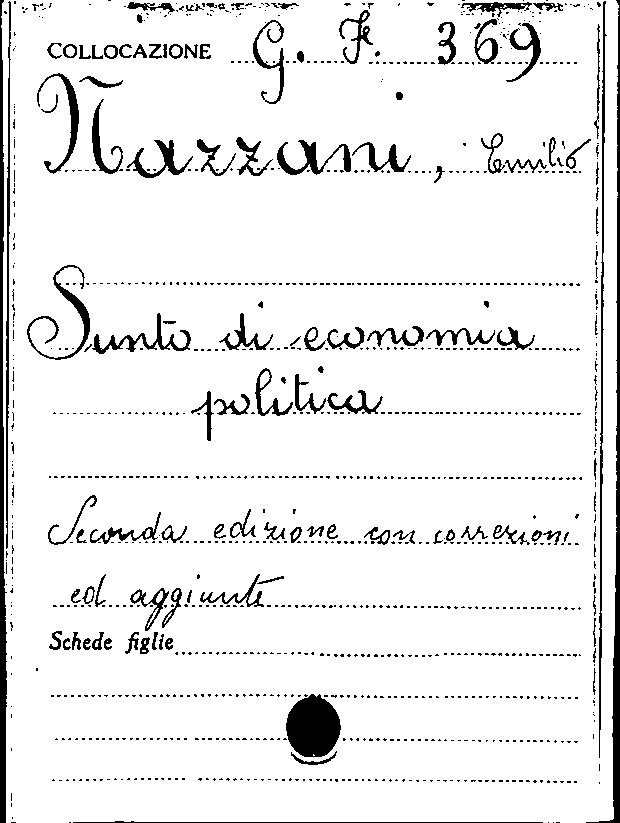 COLLOCAZIONE G. F. 369
Nazzani, Emilio
Sunto di economia
politica
Seconda edizione con correzioni
ed aggiunte
Schede figlie